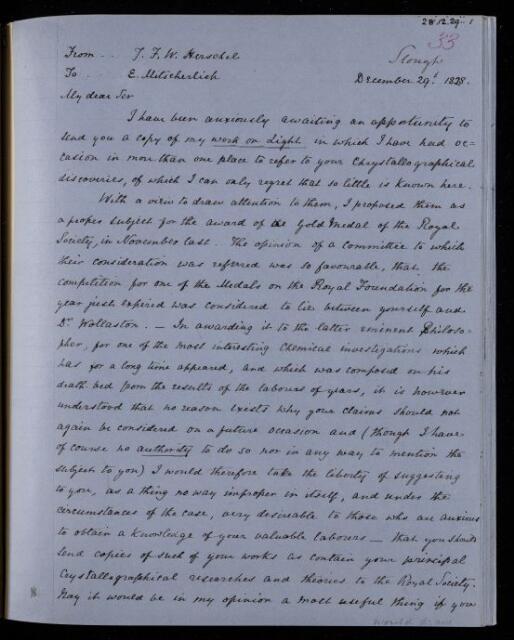 28.12.29 1
33
From .. J. F. W. Herschel
Slough
To .. E. Mitscherlich
December 29th 1828.
My dear Sir
I have been anxiously awaiting an opportunity to
send you a copy of my work on Light in which I have had oc=
casion in more than one place to refer to your Chrystallographical
discoveries, of which I can only regret that so little is known here.
With a view to draw attention to them, I proposed them as
a proper subject for the award of the Gold Medal of the Royal
Society, in November last. The opinion of a Committee to which
their consideration was referred was so favourable, that, the
competition for one of the Medals on the Royal Foundation for the
year just expired was considered to lie between yourself and
Dr. Wollaston. — In awarding it to the latter eminent Philoso=
pher, for one of the most interesting Chemical investigations which
has for a long time appeared, and which was composed on his
death-bed from the results of the labours of years, it is however
understood that no reason exists why your claims should not
again be considered on a future occasion and (though I have
of course no authority to do so nor in any way to mention the
subject to you) I would therefore take the liberty of suggesting
to you, as a thing no way improper in itself, and under the
circumstances of the case, very desireable to those who are anxious
to obtain a knowledge of your valuable labours — that you should
send copies of such of your works as contain your principal
Crystallographical researches and theories to the Royal Society.
Nay it would be in my opinion a most useful thing if you
would draw